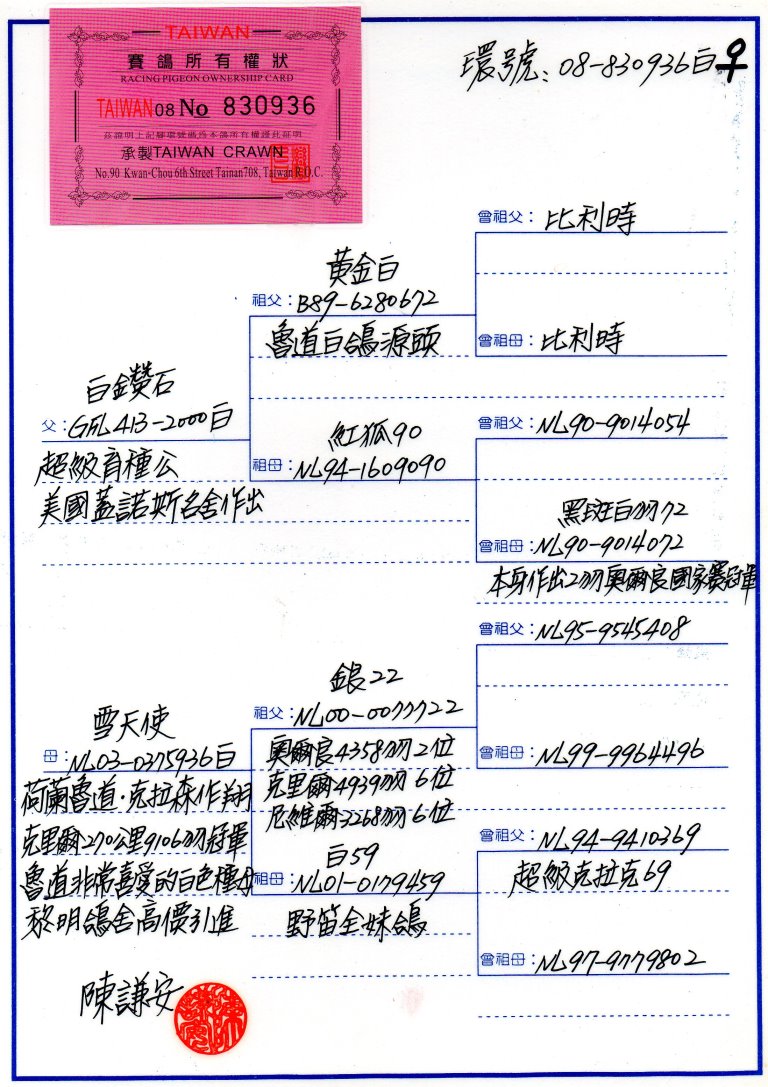 TAIWAN
賽鴿所有權狀
RACING PIGEON OWNERSHIP CARD
TAIWAN 08 No 830936
茲證明上記腳環號碼為本鴿所有權謹此証明
承製TAIWAN CRAWN
No.90 Kwan-Chou 6th Street Tainan708, Taiwan R.O.C.
環號: 08-830936白♀
曾祖父: 比利時
黃金白
祖父: B89-6280672
魯道白鴿源頭
曾祖母: 比利時
白鑽石
父: GFL413-2000白
超級育種公
美國蓋諾斯名舍作出
曾祖父: NL90-9014054
紅狐90
祖母: NL94-1609090
黑斑白羽72
曾祖母: NL90-9014072
本身作出2羽奧爾良國家賽冠軍
曾祖父: NL95-9545408
銀22
祖父: NL00-0077722
奧爾良4358羽2位
克里爾4939羽6位
尼維爾3268羽6位
曾祖母: NL99-9964496
雪天使
母: NL03-0375936白
荷蘭魯道·克拉森作翔
克里爾270公里9106羽冠軍
魯道非常喜愛的白色種母
黎明鴿舍高價引進
白59
祖母: NL01-0179459
野笛全妹鴿
曾祖父: NL94-9410369
超級克拉克69
曾祖母: NL97-9779802
陳謙安